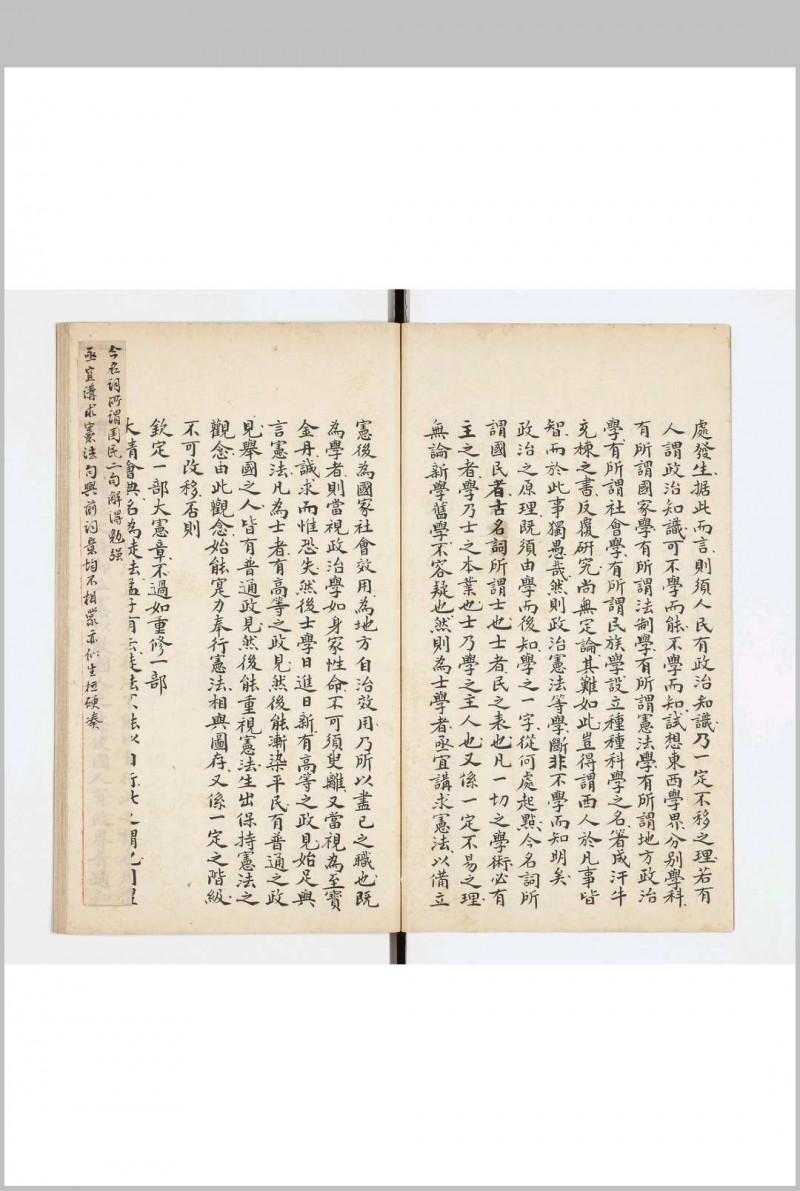 處發生据此而言則須人民有政治知識乃一定不移之理若有
人謂政治知識可不學而能不學而知試想東西學界分別學科
有所謂國家學有所謂法制學有所謂憲法學有所謂地方政治
學有所謂社會學有所謂民族學設立種種科學之名著成汗牛
充棟之書反覆研究尚無定論其難如此豈得謂西人於凡事皆
智而於此事獨愚哉然則政治憲法等學斷非不學而知明矣
政治之原理既須由學而後知學之一字從何處起點今名詞所
謂國民者古名詞所謂士也士者民之表也凡一切之學術必有
主之者學乃士之本業也士乃學之主人也又係一定不易之理
無論新學舊學不容疑也然則為士學者亟宜講求憲法以備立
憲後為國家社會效用為地方自治效用乃所以盡已之職也既
為學者則當視政治學如身家性命不可須臾離又當視為至寶
金丹誠求而惟恐失然後士學日進日新有高等之政見始足與
言憲法凡為士者有高等之政見然後能漸染平民有普通之政
見舉國之人皆有普通政見然後能重視憲法生出保持憲法之
觀念由此觀念始能寔力奉行憲法相與圖存又係一定之階級
不可改移否則
欽定一部大憲章不過如重修一部
大清會典名為走去孟子有云徒法不
今名詞所謂國民二句解得勉強
亟宜講求憲法句與前詞意均不相蒙亦似生拉硬湊